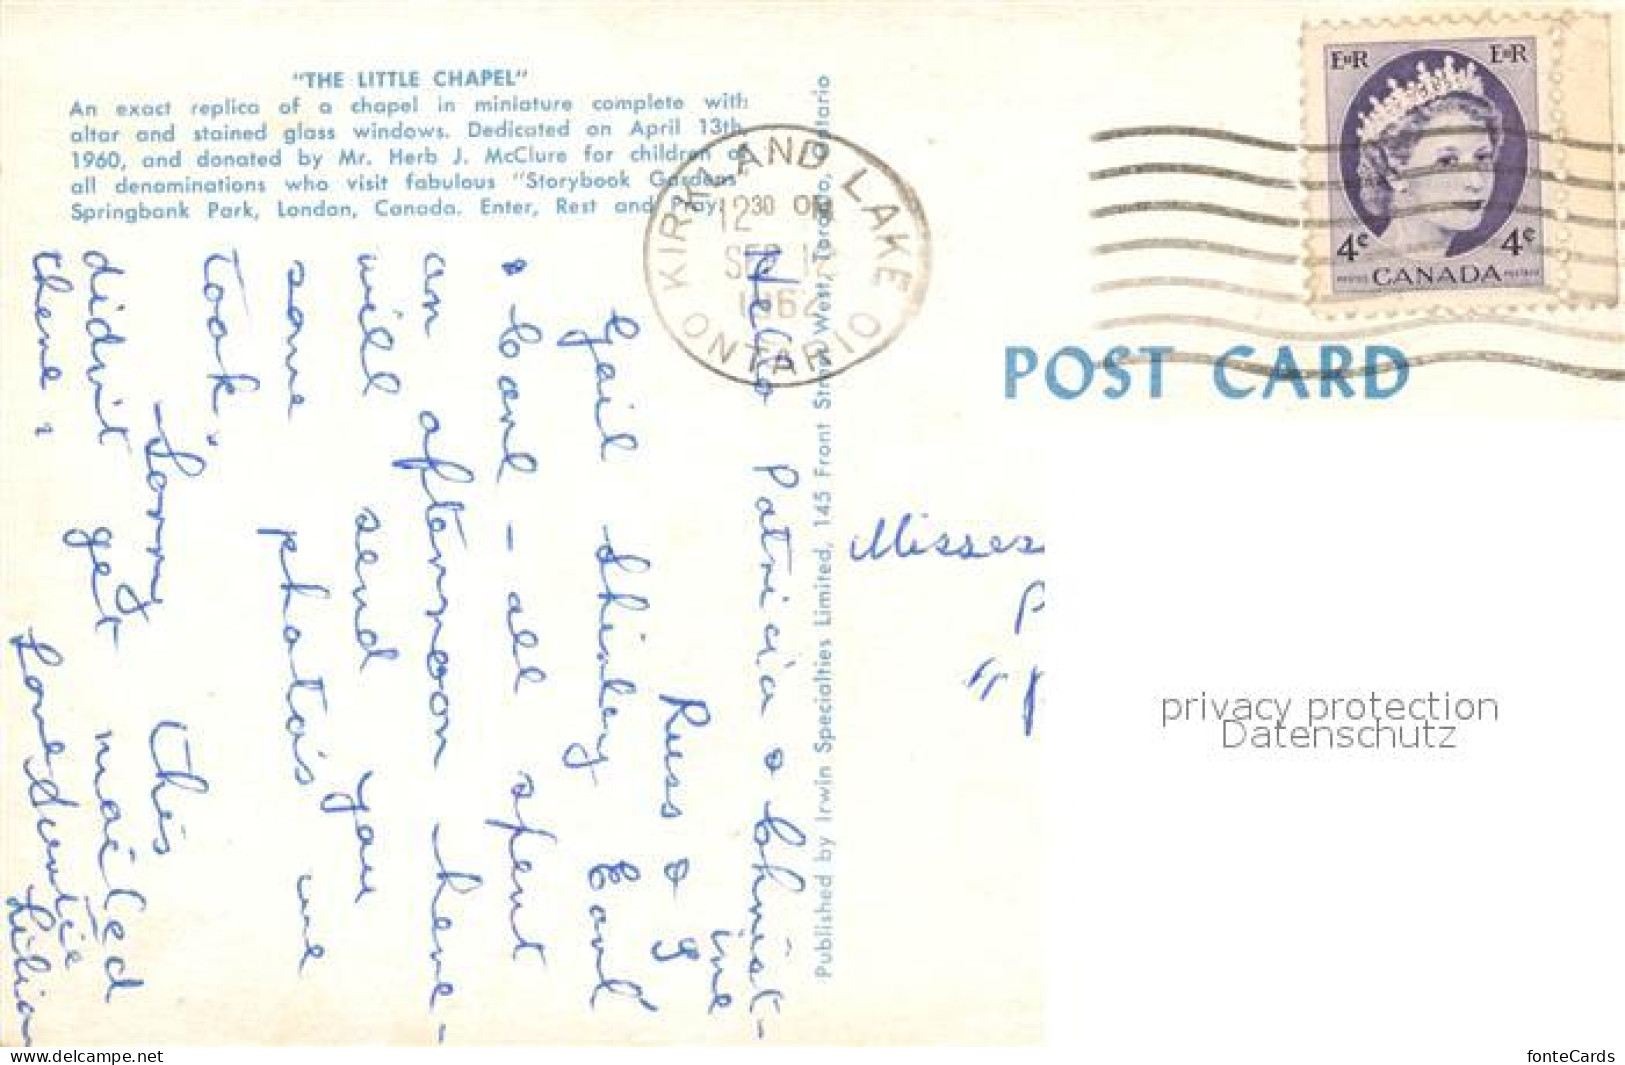 "THE LITTLE CHAPEL"
An exact replica of a chapel in miniature complete with
altar and stained glass windows. Dedicated on April 13th,
1960, and donated by Mr. Herb J. McClure for children of
all denominations who visit fabulous "Storybook Gardens"
Springbank Park, London, Canada. Enter, Rest and Pray.
KIRKLAND LAKE
1230
SEP 1
1962
ONTARIO
E II R E II R
4¢ 4¢
POSTES CANADA POSTAGE
POST CARD
Published by Irwin Specialties Limited, 145 Front Street West, Toronto, Ontario
Hello Patricia & Christ-
ine
Russ & I
Gail Shirley Earl
& Carl - all spent
an afternoon here -
will send you
some photo's we
took.
- Sorry this
didn't get mailed
there.
Love Auntie
Lilian
Misses
P
privacy protection
Datenschutz
www.delcampe.net
fonteCards